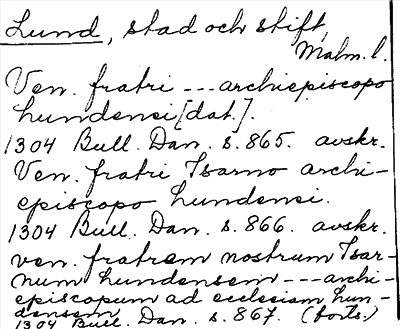 Lund, stad och stift,
Malm. l.
Ven. fratri --- archiepiscopo
lundensi [dat.].
1304 Bull. Dan. s. 865. avskr.
Ven. fratri Isarno archi-
episcopo lundensi.
1304 Bull. Dan. s. 866. avskr.
ven. fratrem nostrum Isar-
num lundensem --- archi-
episcopum ad ecclesiam lun-
densem
1304 Bull. Dan. s. 867. (forts.)